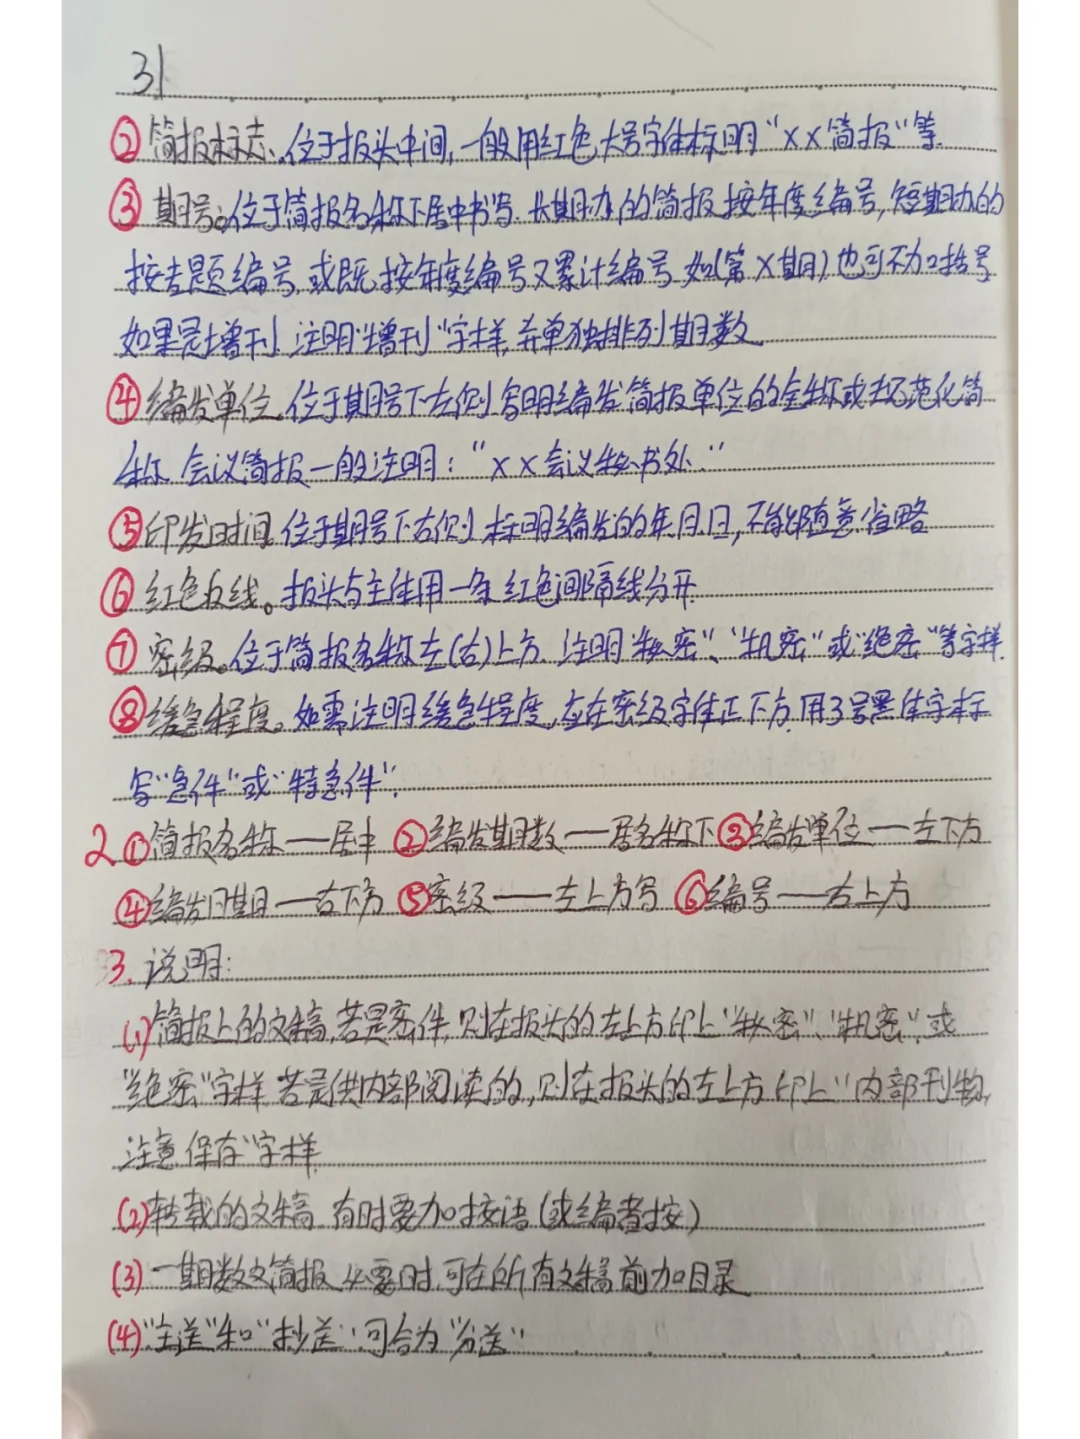 31
②简报标志、位于报头中间,一般用红色大号字体标明“××简报”等.
③期号。位于简报名称下居中书写.长期办的简报按年度编号,短期办的
按专题编号,或既按年度编号又累计编号.如(第×期)也可不加括号
如果是增刊,注明“增刊”字样,并单独排列期数.
④编发单位.位于期号下左侧写明编发简报单位的全称或规范化简
称.会议简报一般注明:“××会议秘书处.”
⑤印发时间.位于期号下右侧标明编发的年.月.日,不能随意省略
⑥红色反线。报头与主体用一条红色间隔线分开.
⑦密级。位于简报名称左(右)上方.注明“秘密”、“机密”或“绝密”等字样.
⑧缓急程度。如需注明缓急程度,应在密级字体正下方.用3号黑体字标
写“急件”或“特急件”.
2 ①简报名称——居中 ②编发期数——居名称下③编发单位——左下方
④编发日期——右下方 ⑤密级——左上方写 ⑥编号——右上方
3.说明:
(1)简报上的文稿,若是密件,则在报头的左上方印上“秘密”、“机密”,或
“绝密”字样.若是供内部阅读的,则在报头的左上方印上“内部刊物,
注意保存”字样.
(2)转载的文稿,有时要加按语(或编者按)
(3)一期数文简报,必要时,可在所有文稿前加目录
(4)“主送”和“抄送”.可合为“分送”